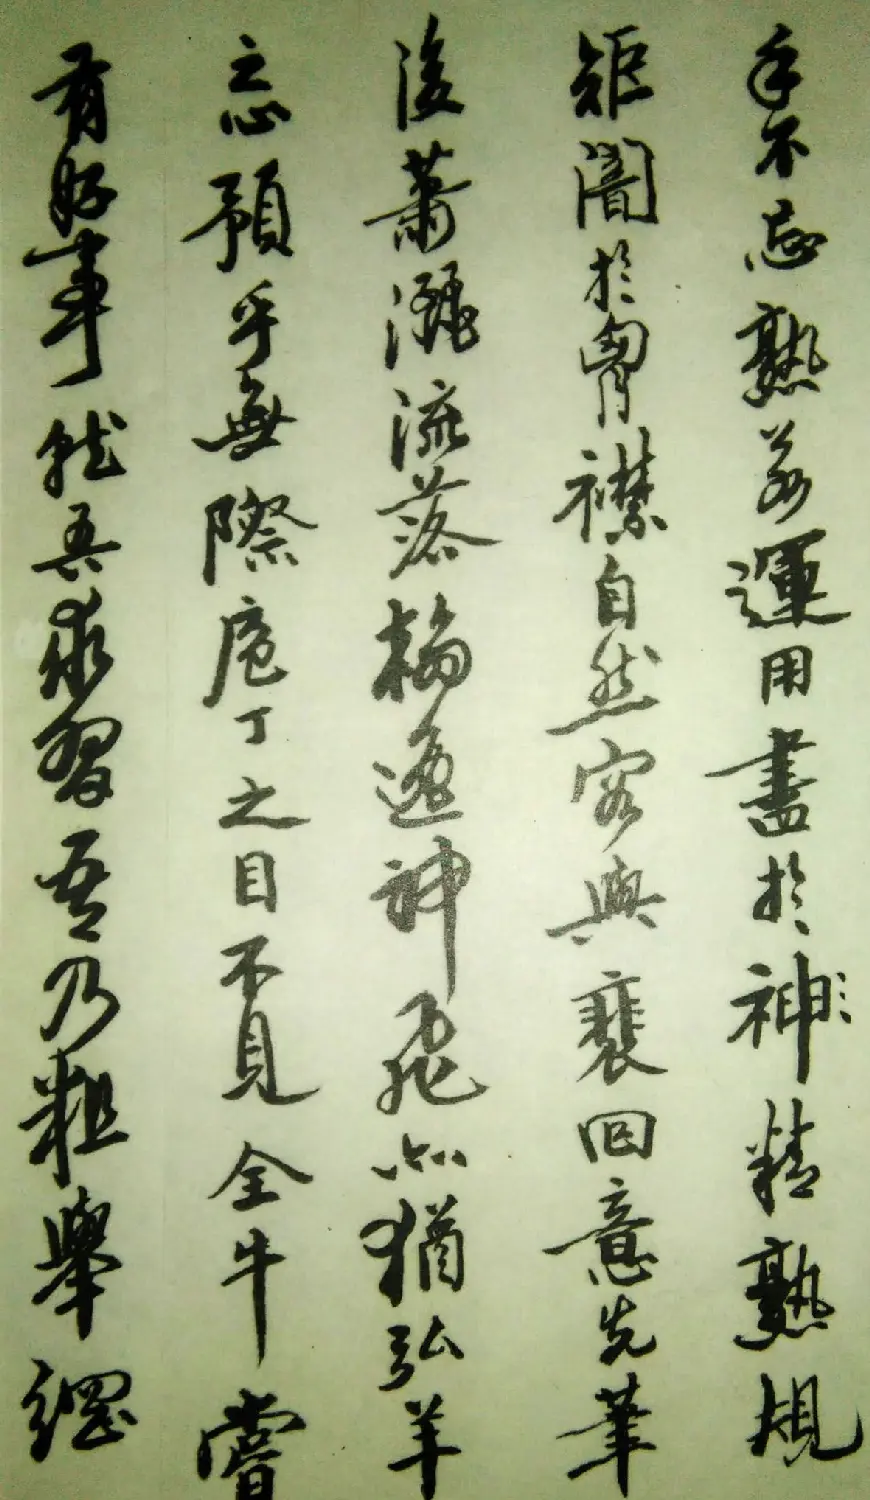 手不忘熟若運用盡於神精熟規
矩闇於胷襟自然容與裵回意先筆
後蕭灑流落翰逸神飛亦猶弘羊
之心預乎無際庖丁之目不見全牛嘗
有好事就吾求習吾乃粗舉綱